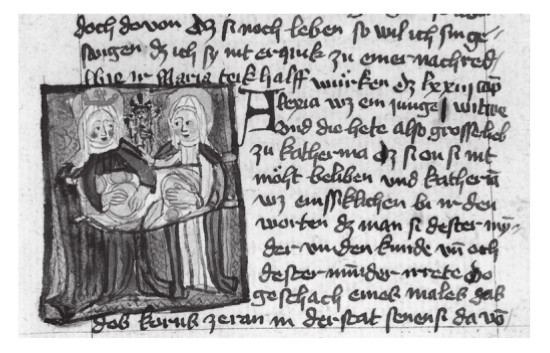 doch do von dz si noch leben so wil ich sin ge-
swigen dz ich sy nit erquik zu einer nach red
wie ir Maria teik halff würken dz lxxiij cap
Alexia wz ein junge witwe
vnd die hete also gross lieb
zu katherina dz si on si nit
möht beliben vnd katherina
wz einssiklichen bi ir den
worten dz man si dester
der vnden kunde vnd och
dester minder irrete Do
geschach eines males das
das korns zeran in der stat senens da